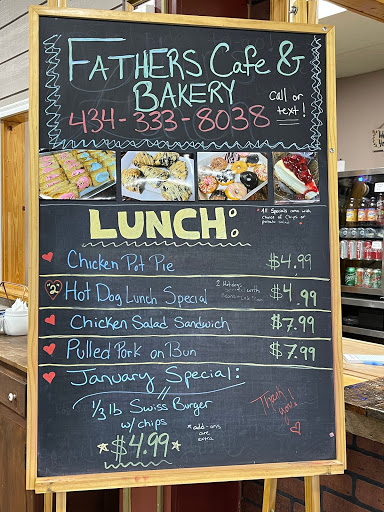 FATHERS Cafe &
BAKERY
434-333-8038
call or
text!
LUNCH:
*All Specials come with
choice of Chips or
potato salad
Chicken Pot Pie $4.99
Hot Dog Lunch Special 2 Hotdogs $4.99
served with
Chicken Salad Sandwich $7.99
Pulled Pork on Bun $7.99
January Special:
1/3 lb Swiss Burger
w/ chips
*add-ons
are
extra
*$4.99*
Thank
you!